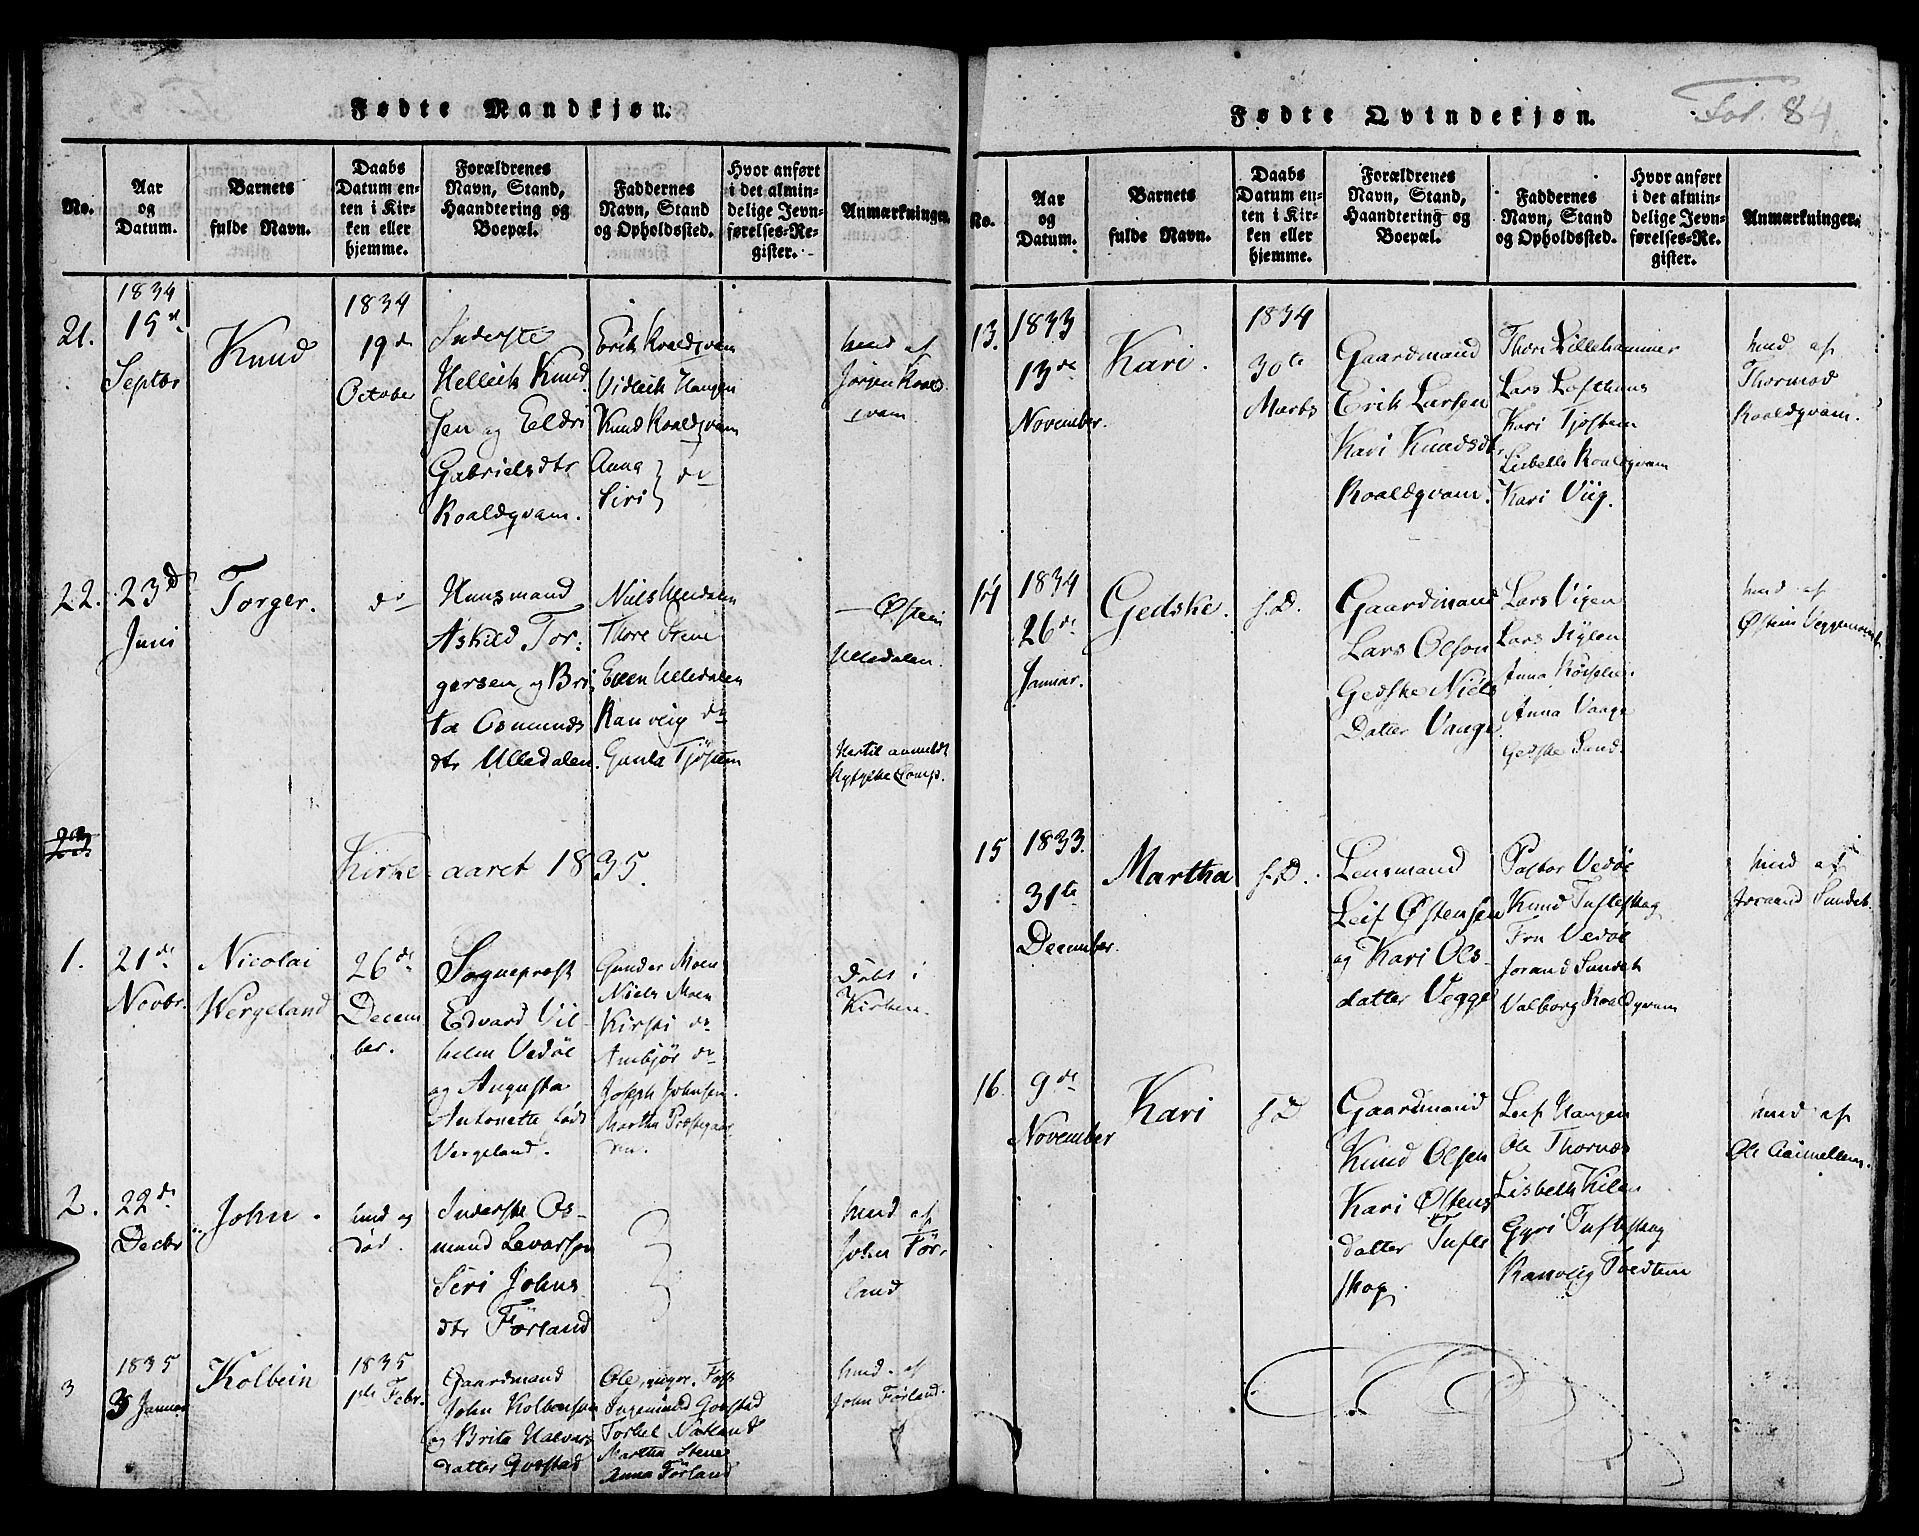 Fødte Mandkjøn.
No.
Aar
og
Datum.
Barnets
fulde Navn.
Daabs
Datum en-
ten i Kir-
ken eller
hjemme.
Forældrenes
Navn, Stand,
Haandtering og
Boepæl.
Faddernes
Navn, Stand
og Opholdssted.
Hvor anført
i det almin-
delige Jevn-
førelses-Re-
gister.
Anmærkninger.
21.
1834
15de
Septbr
Knud
1834
19de
October
Inderste
Helleik Knud
sen og Eldri
Gabrielsdtr
Roaldqvam.
Erik Roaldqvam
Vidleik Haugen
Knud Roaldqvam
Anna
Siri do
hmd af
Jørgen Roald
qvam
22.
23d
Juni
Torger.
do
Huusmand
Askild Tor-
gersen og Bri
ta Osmunds
dtr Ulledalen.
Niels Ulledalen
Thore Stene
Even Ulledalen
Ranveig do
Gunla Tjøstem
— Østein
Ulledalen.
Kirke-aaret 1835.
1.
21de
Novbr.
Nicolai
Wergeland
26de
Decem
ber.
Sogneprest
Edvard Vil-
helm Vedøe
og Augusta
Antonette, født
Vergeland.
Gunder Moen
Niels Moen
Kirsti do
Ambjør do
Joseph Johnsen.
Martha Præstegaar
den.
Døbt i
Kirken.
2.
22de
Decbr
John.
hmd og
død.
Inderste Os-
mund Levarsen
Seri Johns
dtr Førland
hmd af
John Før-
land
3
1835
3 Januar
Kolbein
1835
1ste Febr.
Gaardmand
John Kolbensen
og Brita Halvars
datter Govstad
Ole, Foss
Ingemund Govstad
Torkel Natland
Martha Stene
Anna Førland
hmd. af
John Førland.
Fødte Qvindekjøn.
Fol. 84
No.
Aar
og
Datum.
Barnets
fulde Navn.
Daabs
Datum en-
ten i Kir-
ken eller
hjemme.
Forældrenes
Navn, Stand,
Haandtering og
Boepæl.
Faddernes
Navn, Stand
og Opholdssted.
Hvor anført
i det almin-
delige Jevn-
førelses-Re-
gister.
Anmærkninger.
13.
1833
13de
November.
Kari.
1834
30te
Marts
Gaardmand
Erik Larsen
Kari Knudsdtr.
Roaldqvam.
Thori Lillehammer
Lars Lofthuus
Kari Tjøstem
Lisbeth Roaldqvam
Kari Viig.
hmd af
Thormod
Roaldqvam.
14
1834
26de
Januar.
Gedske.
s. D.
Gaardmand
Lars Olson
Gedske Niels
Datter Vaage.
Lars Vigen
Lars Hylen
Anna
Anna Vaage
Gedske Sand.
hmd af
Østein
15
1833.
31te
December.
Martha
s. D.
Lensmand
Leif Østensen
og Kari Ols-
datter Vegge
Pastor Vedøe
Knud Tufteskag
Fru Vedøe
Jorand Sundet
Valborg Roaldqvam
hmd af
Joraand Sundet.
16.
9de
November
Kari
s. D
Gaardmand
Knud Olsen
Kari Østens
datter Tufte
skag.
Leif Haugen
Ole Thornæs
Lisbeth Kilen
Gyri Tufteskag
Ranveig Tvedtem
hmd af
Ole